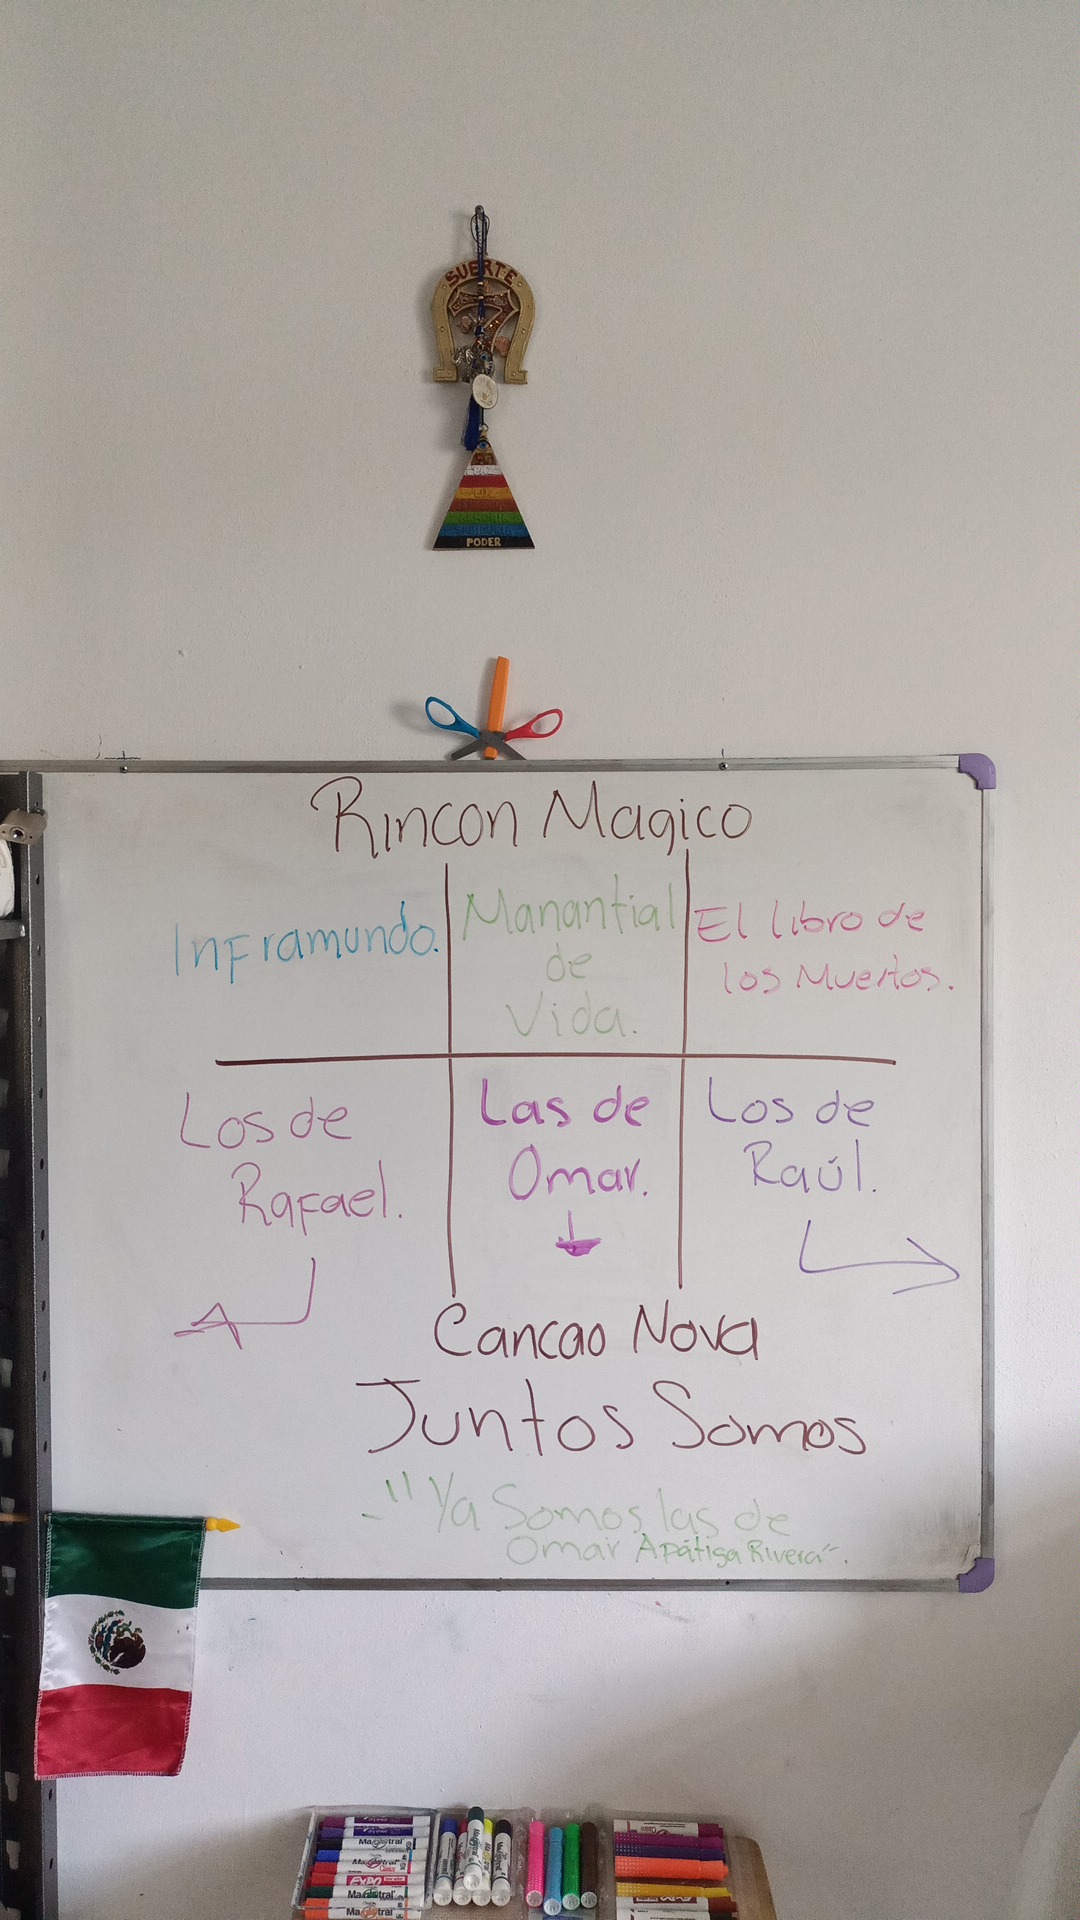 SUERTE
7
PODER
Rincon Magico
Inframundo.
Manantial
de
Vida.
El libro de
los Muertos.
Los de
Rafael.
Las de
Omar.
Los de
Raúl.
Cancao Nova
Juntos Somos
"Ya Somos las de
Omar Apátiga Rivera".
Magistral
Magistral
EXPO
Magistral
Magistral